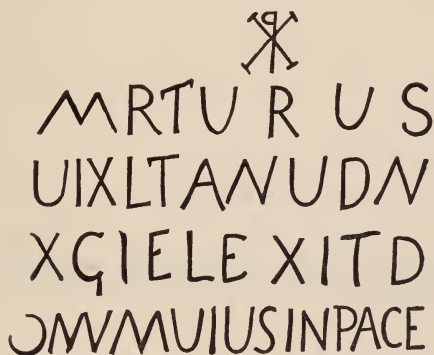 ☧
MRTURUS
UIXLTANUDN
XGIELEXITD
ƆMMUIUSINPACE